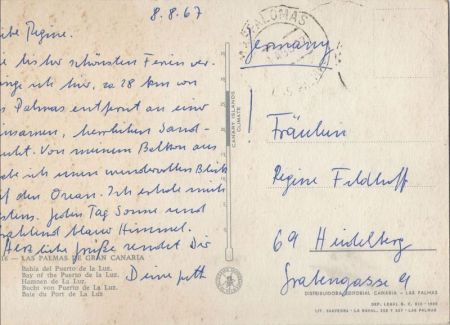 8.8.67
be Regine.
e bisher schönsten Ferien ver-
inge ich hier, ca 28 km von
s Palmas entfernt an einer
insamen, herrlichen Sand-
ucht. Von meinem Balkon aus
abe ich einen wundervollen Blick
uf den Ozean. Ich erhole mich
stens. Jeden Tag Sonne und
rahlend blauer Himmel.
Herzliche Grüße sendet Dir
Deine
16 - LAS PALMAS DE GRAN CANARIA
Bahia del Puerto de la Luz.
Bay of the Puerto de la Luz.
Hamnen de La Luz.
Bucht von Puerto de La Luz.
Baie du Port de La Luz
CANARY ISLANDS
CLIMATE
MASPALOMAS
Germany
Fräulein
Regine Feldhoff
69 Heidelberg
Grabengasse 9
DISTRIBUIDORA EDITORIAL CANARIA - LAS PALMAS
DEP. LEGAL B. C. 810 - 1965
LIT. SAAVEDRA - LA NAVAL, 225 Y 227 - LAS PALMAS